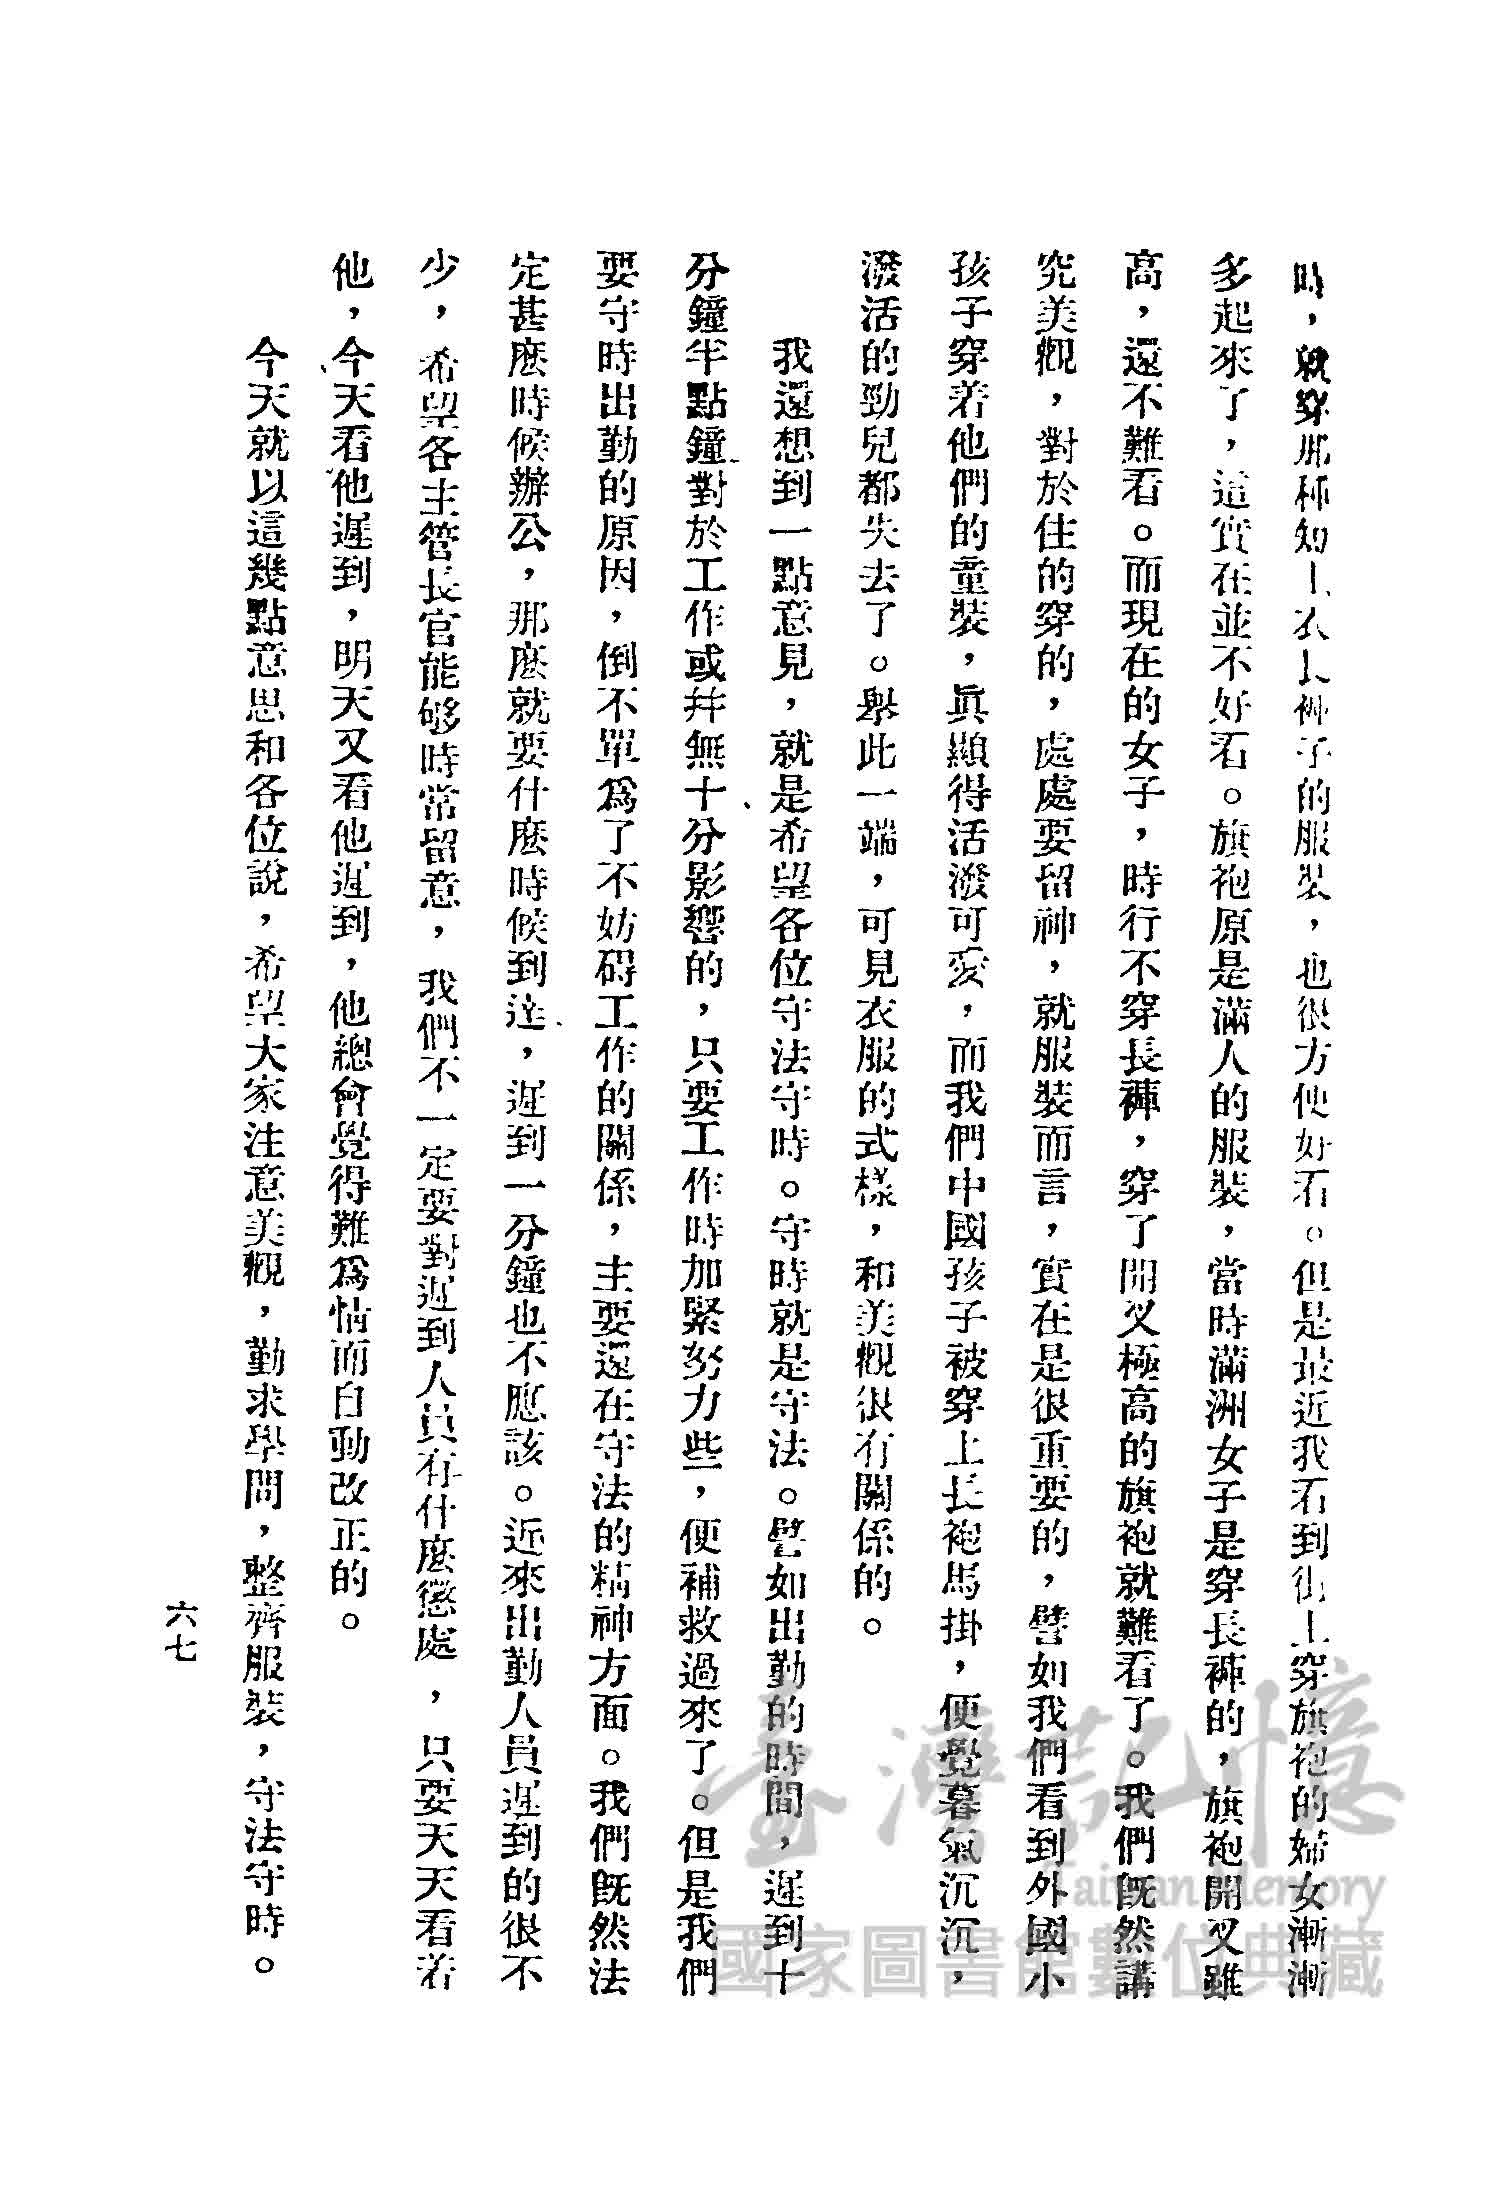 時，就穿那種短上衣長褲子的服裝，也很方便好看。但是最近我看到街上穿旗袍的婦女漸漸
多起來了，這實在並不好看。旗袍原是滿人的服裝，當時滿洲女子是穿長褲的，旗袍開叉雖
高，還不難看。而現在的女子，時行不穿長褲，穿了開叉極高的旗袍就難看了。我們旣然講
究美觀，對於住的穿的，處處要留神，就服裝而言，實在是很重要的，譬如我們看到外國小
孩子穿着他們的童裝，眞顯得活潑可愛，而我們中國孩子被穿上長袍馬掛，便覺暮氣沉沉，
潑活的勁兒都失去了。舉此一端，可見衣服的式樣，和美觀很有關係的。
我還想到一點意見，就是希望各位守法守時。守時就是守法。譬如出勤的時間，遲到十
分鐘半點鐘對於工作或幷無十分影響的，只要工作時加緊努力些，便補救過來了。但是我們
要守時出勤的原因，倒不單爲了不妨碍工作的關係，主要還在守法的精神方面。我們旣然法
定甚麽時候辦公，那麽就要什麽時候到達，遲到一分鐘也不應該。近來出勤人員遲到的很不
少，希望各主管長官能够時常留意，我們不一定要對遲到人員有什麽懲處，只要天天看若
他，今天看他遲到，明天又看他遲到，他總會覺得難爲情而自動改正的。
今天就以這幾點意思和各位說，希望大家注意美觀，勤求學問，整齊服裝，守法守時。
六七
臺灣記憶
Taiwan Memory
國家圖書館數位典藏